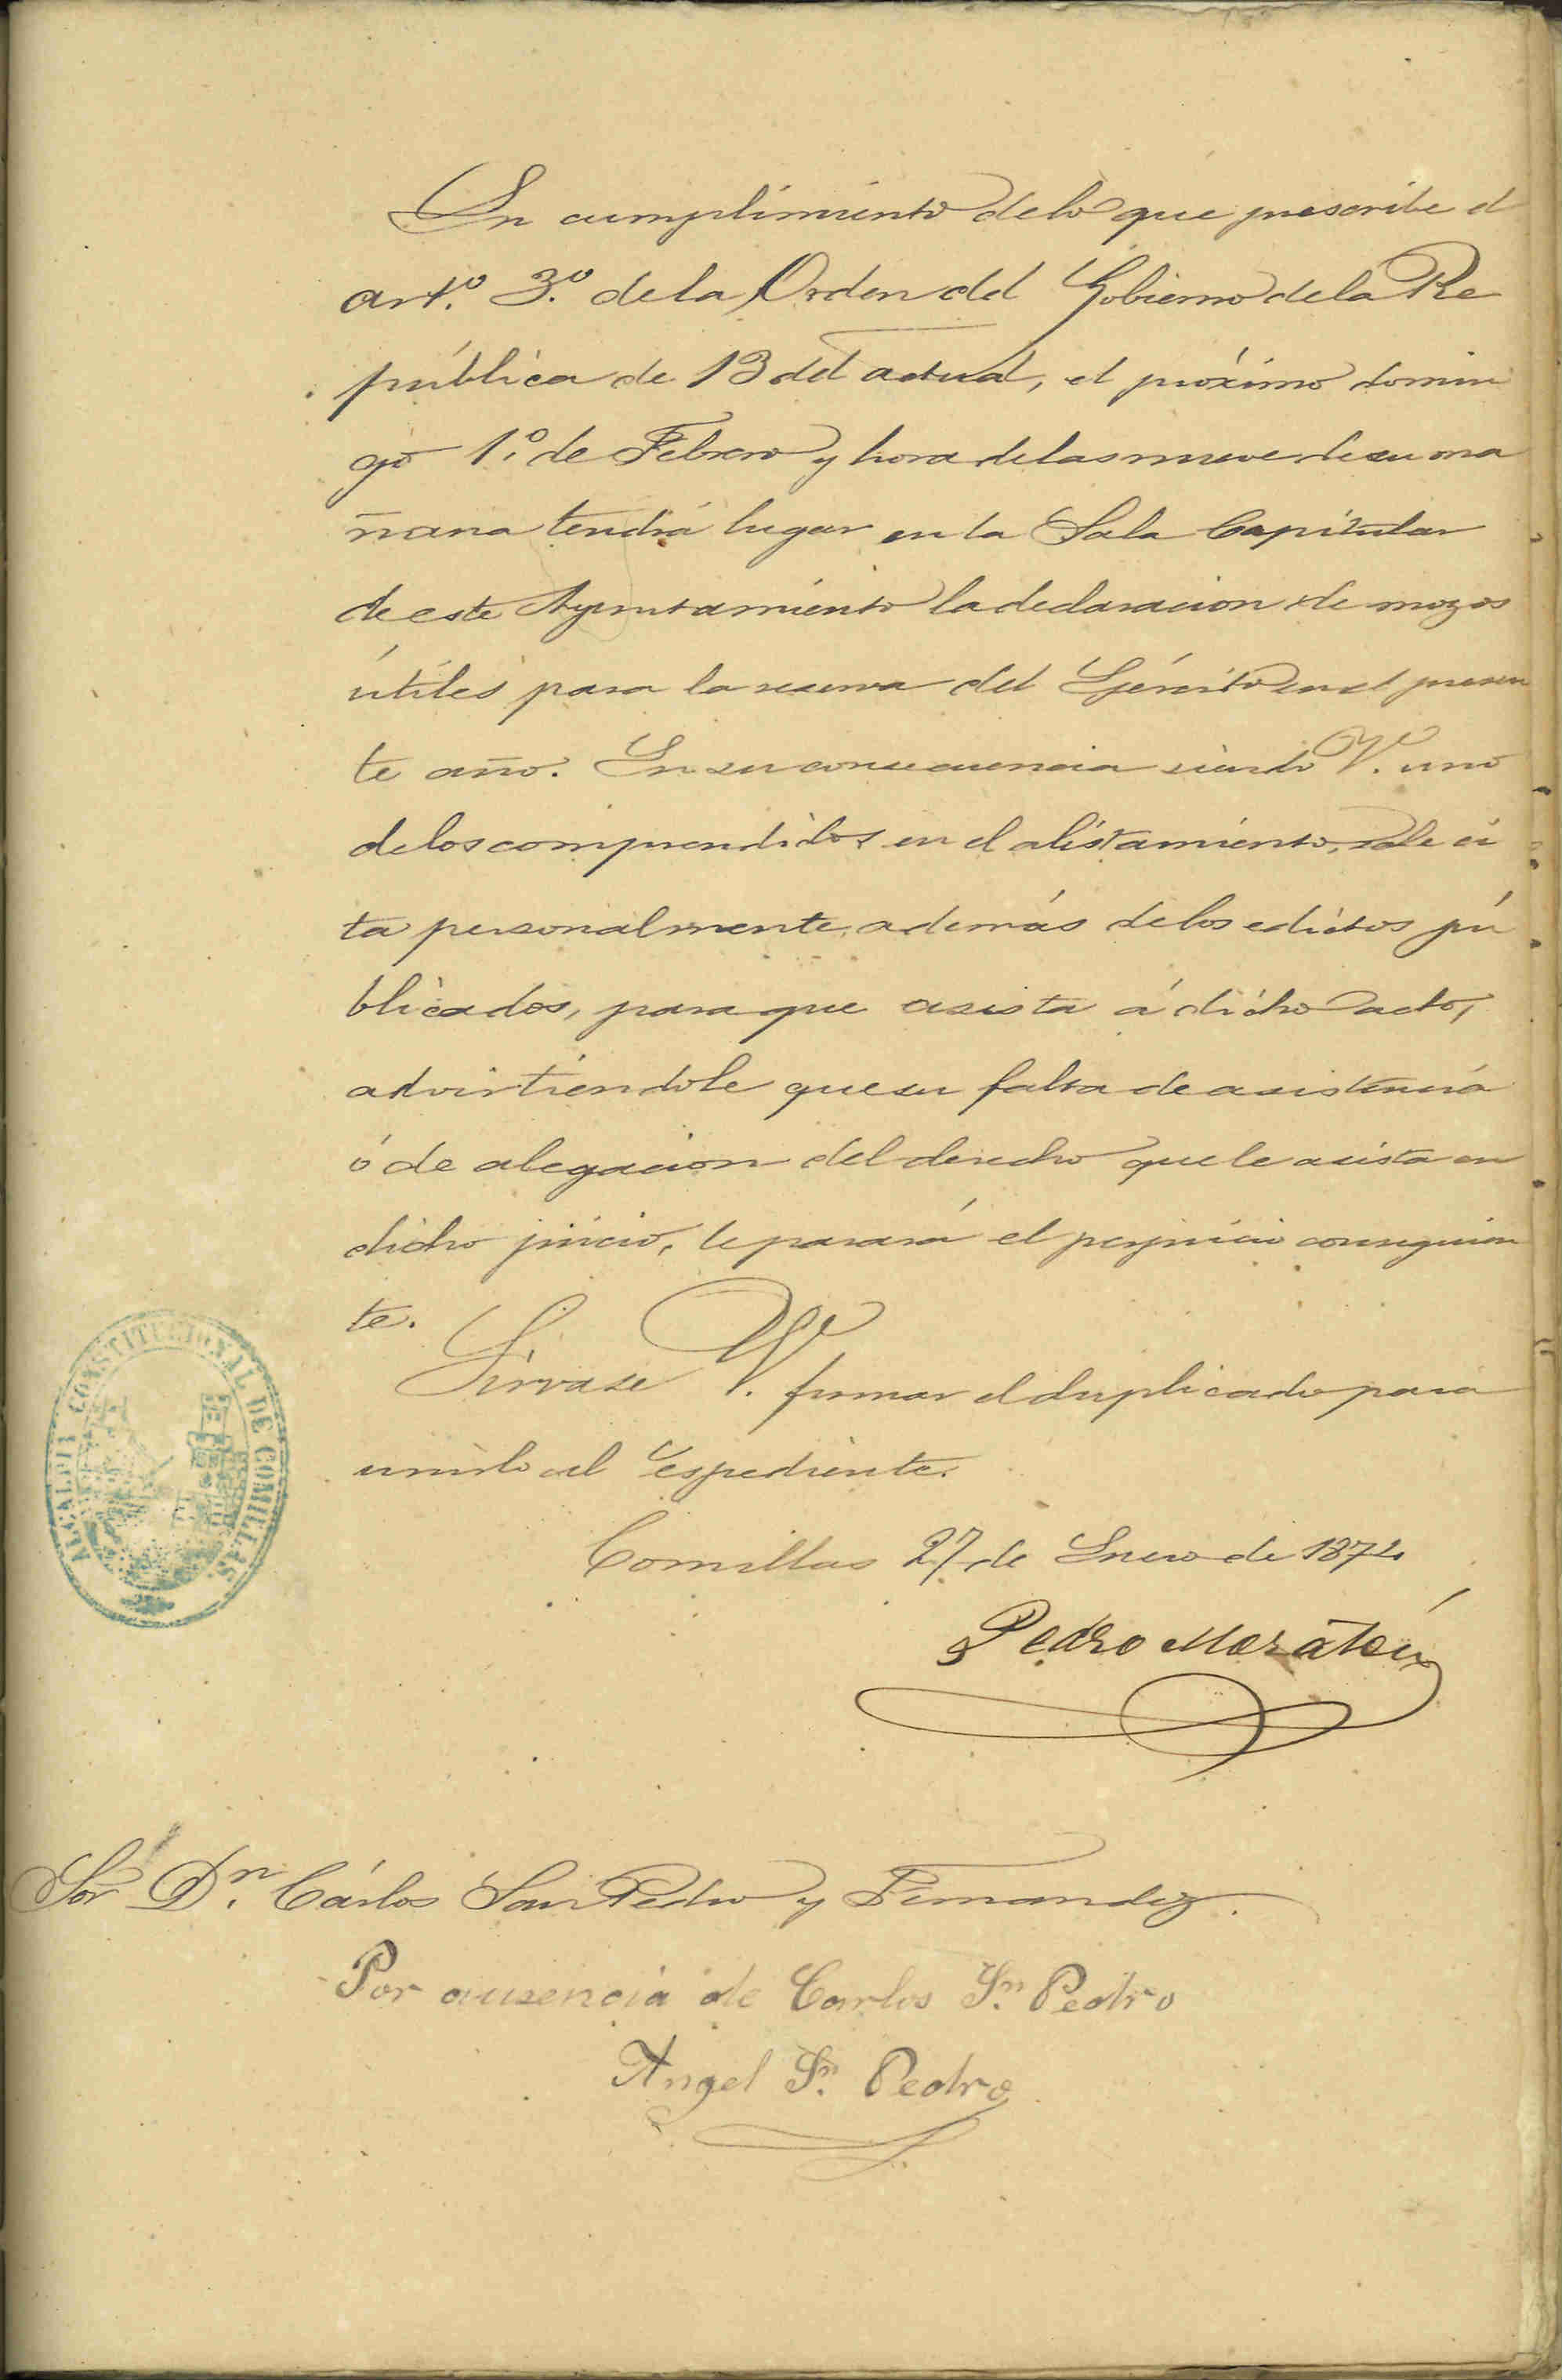 En cumplimiento de lo que prescribe el
art.º 3.º de la Orden del Gobierno de la Re
pública de 13 del actual, el próximo domin
go 1.º de Febrero y hora de las nueve de su ma
ñana tendrá lugar en la Sala Capitular
de este Ayuntamiento la declaracion de mozos
útiles para la reserva del Ejército en el presen
te año. En su consecuencia siendo V. uno
de los comprendidos en el alistamiento, se le ci
ta personalmente, además de los edictos pu
blicados, para que asista á dicho acto,
advirtiendole que su falta de asistencia
ó de alegacion del derecho que le asista en
dicho juicio, le parará el perjuicio consiguien
te.
Sirvase V. firmar el duplicado para
unirlo al espediente.
ALCALDIA CONSTITUCIONAL DE COMILLAS
Comillas 27 de Enero de 1874
Pedro
Sor Dn. Cárlos San Pedro y Fernandez.
Por ausencia de Carlos Sn. Pedro
Angel Sn. Pedro